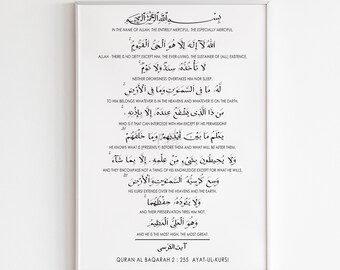 بِسْمِ اللَّهِ الرَّحْمَٰنِ الرَّحِيمِ
IN THE NAME OF ALLAH, THE ENTIRELY MERCIFUL, THE ESPECIALLY MERCIFUL.
اللَّهُ لَا إِلَٰهَ إِلَّا هُوَ الْحَيُّ الْقَيُّومُ
ALLAH - THERE IS NO DEITY EXCEPT HIM, THE EVER-LIVING, THE SUSTAINER OF [ALL] EXISTENCE.
لَا تَأْخُذُهُ سِنَةٌ وَلَا نَوْمٌ
NEITHER DROWSINESS OVERTAKES HIM NOR SLEEP.
لَهُ مَا فِي السَّمَاوَاتِ وَمَا فِي الْأَرْضِ
TO HIM BELONGS WHATEVER IS IN THE HEAVENS AND WHATEVER IS ON THE EARTH.
مَنْ ذَا الَّذِي يَشْفَعُ عِنْدَهُ إِلَّا بِإِذْنِهِ
WHO IS IT THAT CAN INTERCEDE WITH HIM EXCEPT BY HIS PERMISSION?
يَعْلَمُ مَا بَيْنَ أَيْدِيهِمْ وَمَا خَلْفَهُمْ
HE KNOWS WHAT IS [PRESENTLY] BEFORE THEM AND WHAT WILL BE AFTER THEM,
وَلَا يُحِيطُونَ بِشَيْءٍ مِنْ عِلْمِهِ إِلَّا بِمَا شَاءَ
AND THEY ENCOMPASS NOT A THING OF HIS KNOWLEDGE EXCEPT FOR WHAT HE WILLS.
وَسِعَ كُرْسِيُّهُ السَّمَاوَاتِ وَالْأَرْضَ
HIS KURSI EXTENDS OVER THE HEAVENS AND THE EARTH,
وَلَا يَئُودُهُ حِفْظُهُمَا
AND THEIR PRESERVATION TIRES HIM NOT.
وَهُوَ الْعَلِيُّ الْعَظِيمُ
AND HE IS THE MOST HIGH, THE MOST GREAT.
آيت الكرسي
QURAN AL BAQARAH 2 : 255 AYAT-UL-KURSI